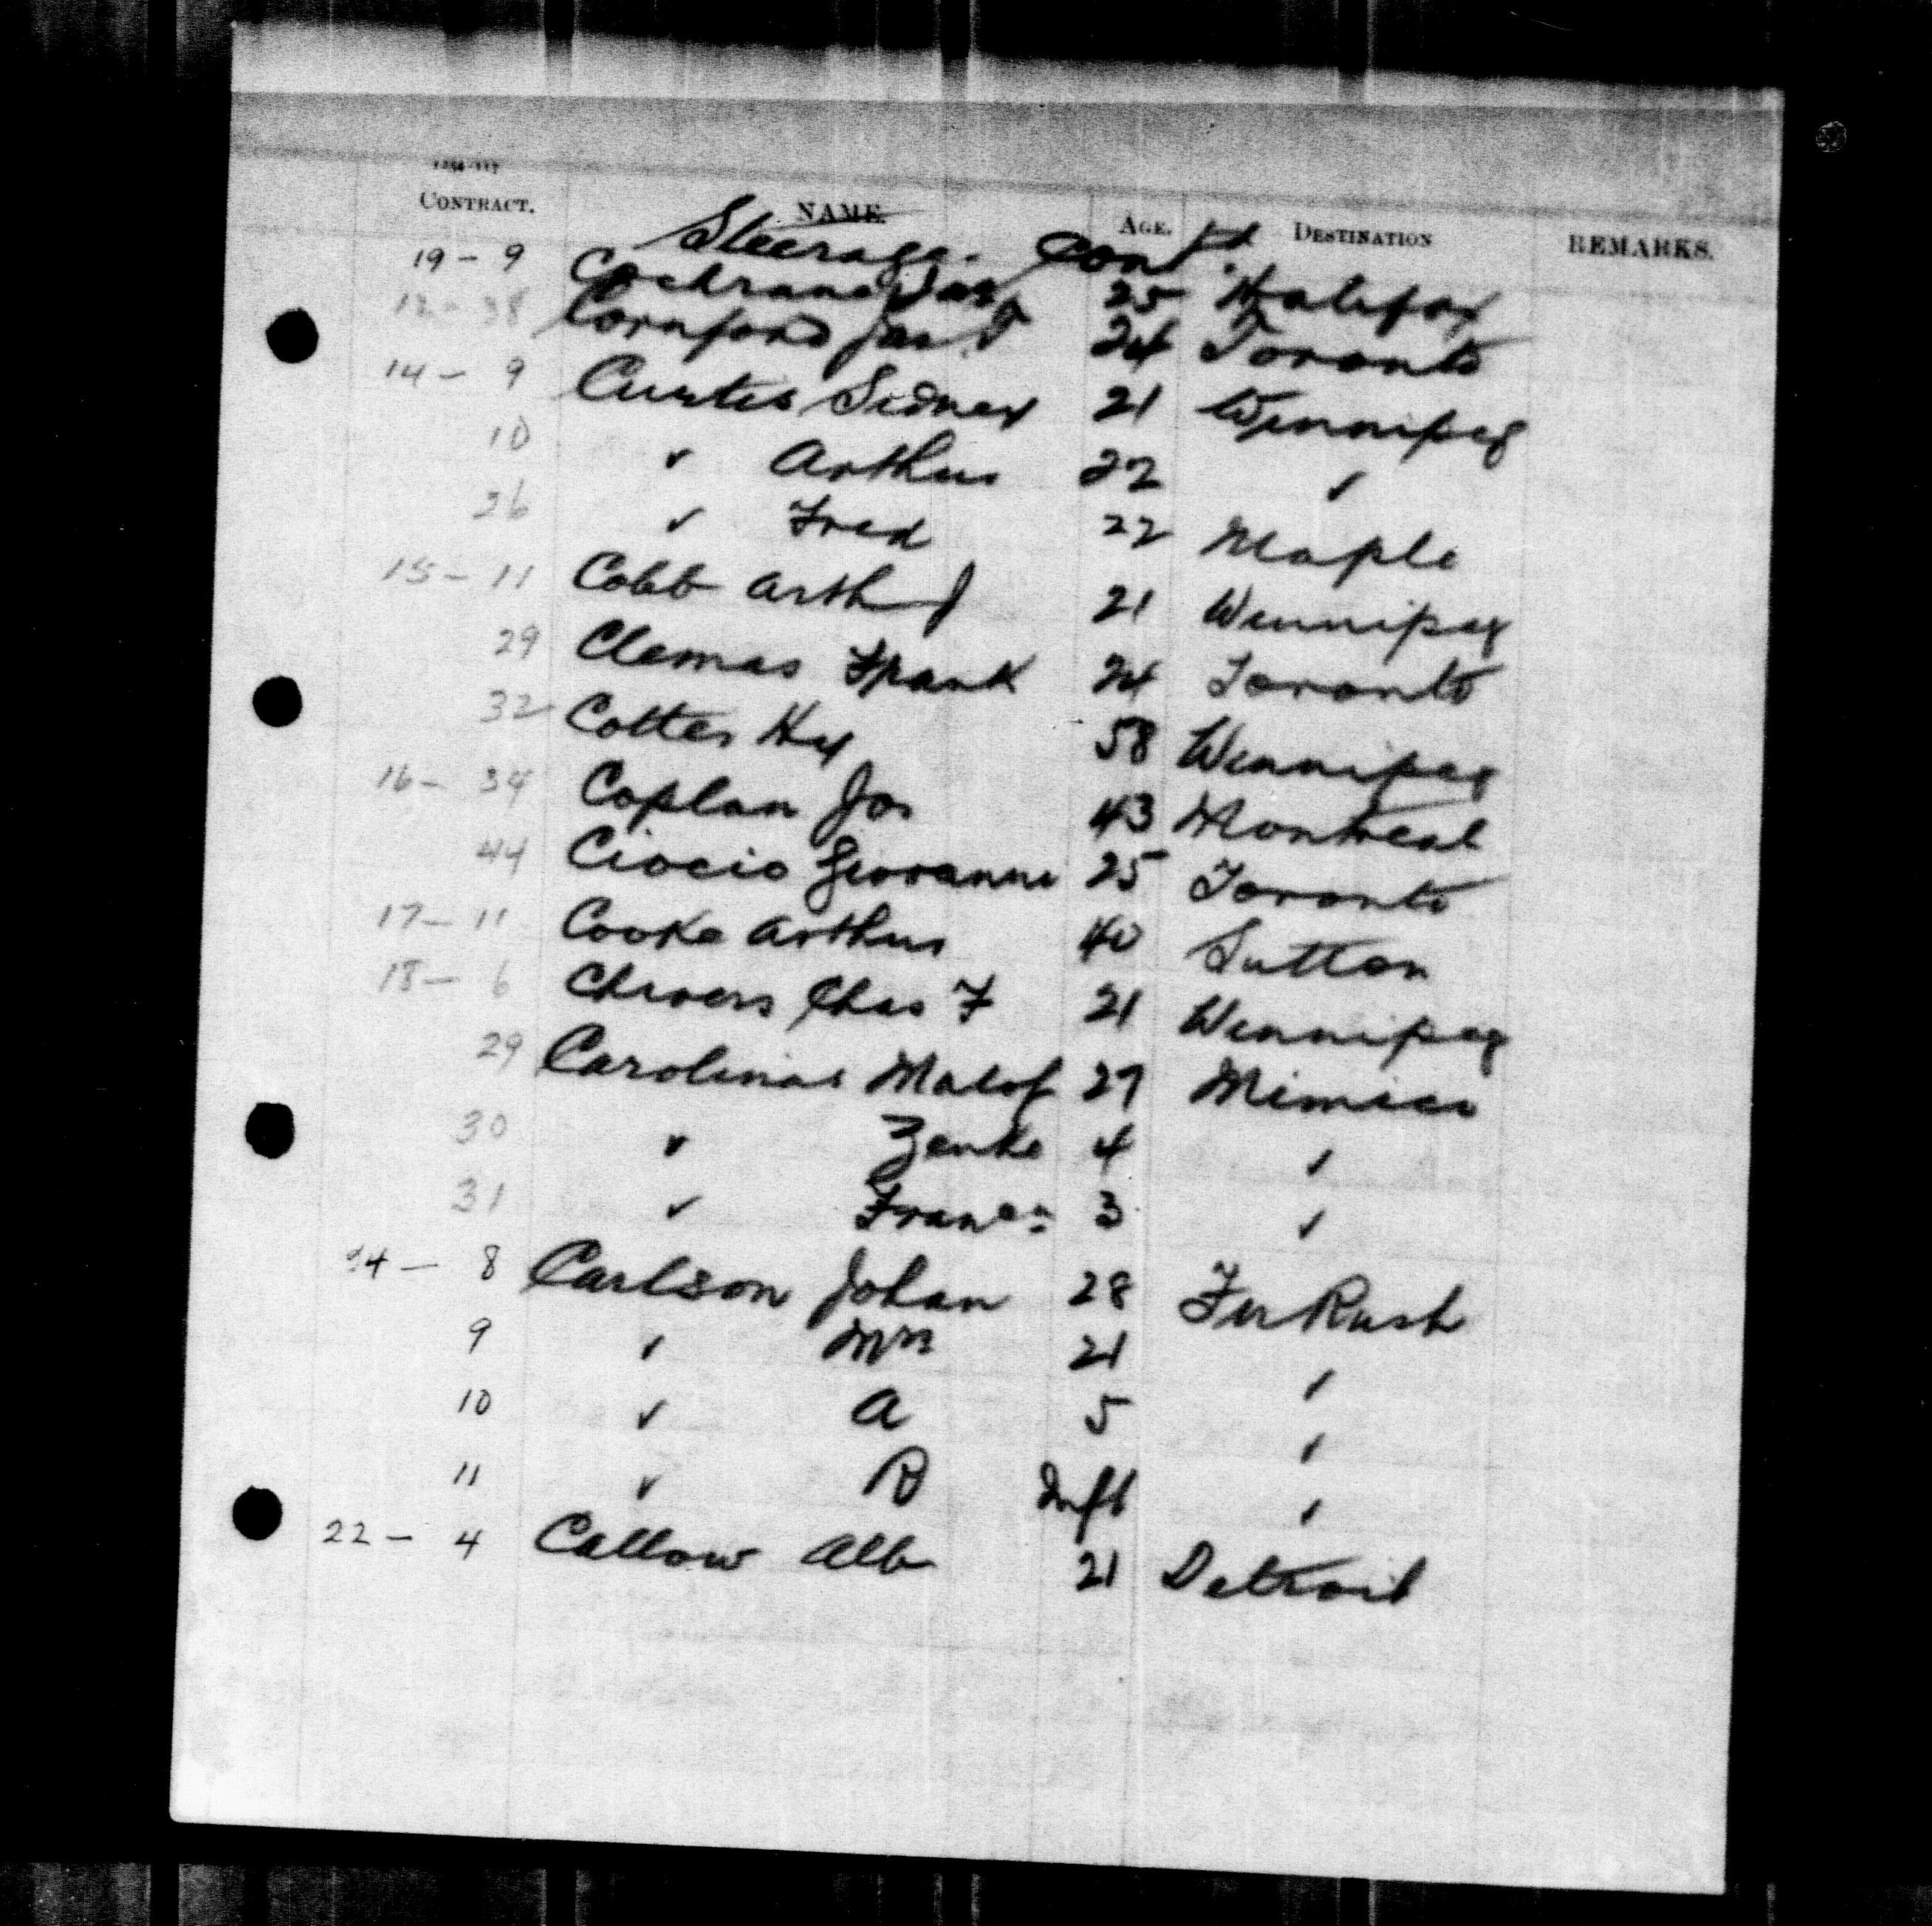 CONTRACT. NAME. AGE. DESTINATION REMARKS.
Steerage. Cont'd
19 - 9 Cochrane Jas 25 Halifax
12 - 38 Cornford Jas T 24 Toronto
14 - 9 Curtis Sidney 21 Winnipeg
10 " Arthur 22 "
26 " Fred 22 Maple
15 - 11 Cobb Arth J 21 Winnipeg
29 Clemas Frank 24 Toronto
32 Cotter Hy 58 Winnipeg
16 - 34 Coplan Jos 43 Montreal
44 Ciocio Giovanni 25 Toronto
17 - 11 Cooke Arthur 40 Sutton
18 - 6 Chivers Chas F 21 Winnipeg
29 Carolinas 27 Mimico
30 " Zenke 4 "
31 " 3 "
8 Carlson Johan 28
9 " Mrs 21 "
10 " A 5 "
11 " R Inft "
22 - 4 Callow Alb 21 Detroit